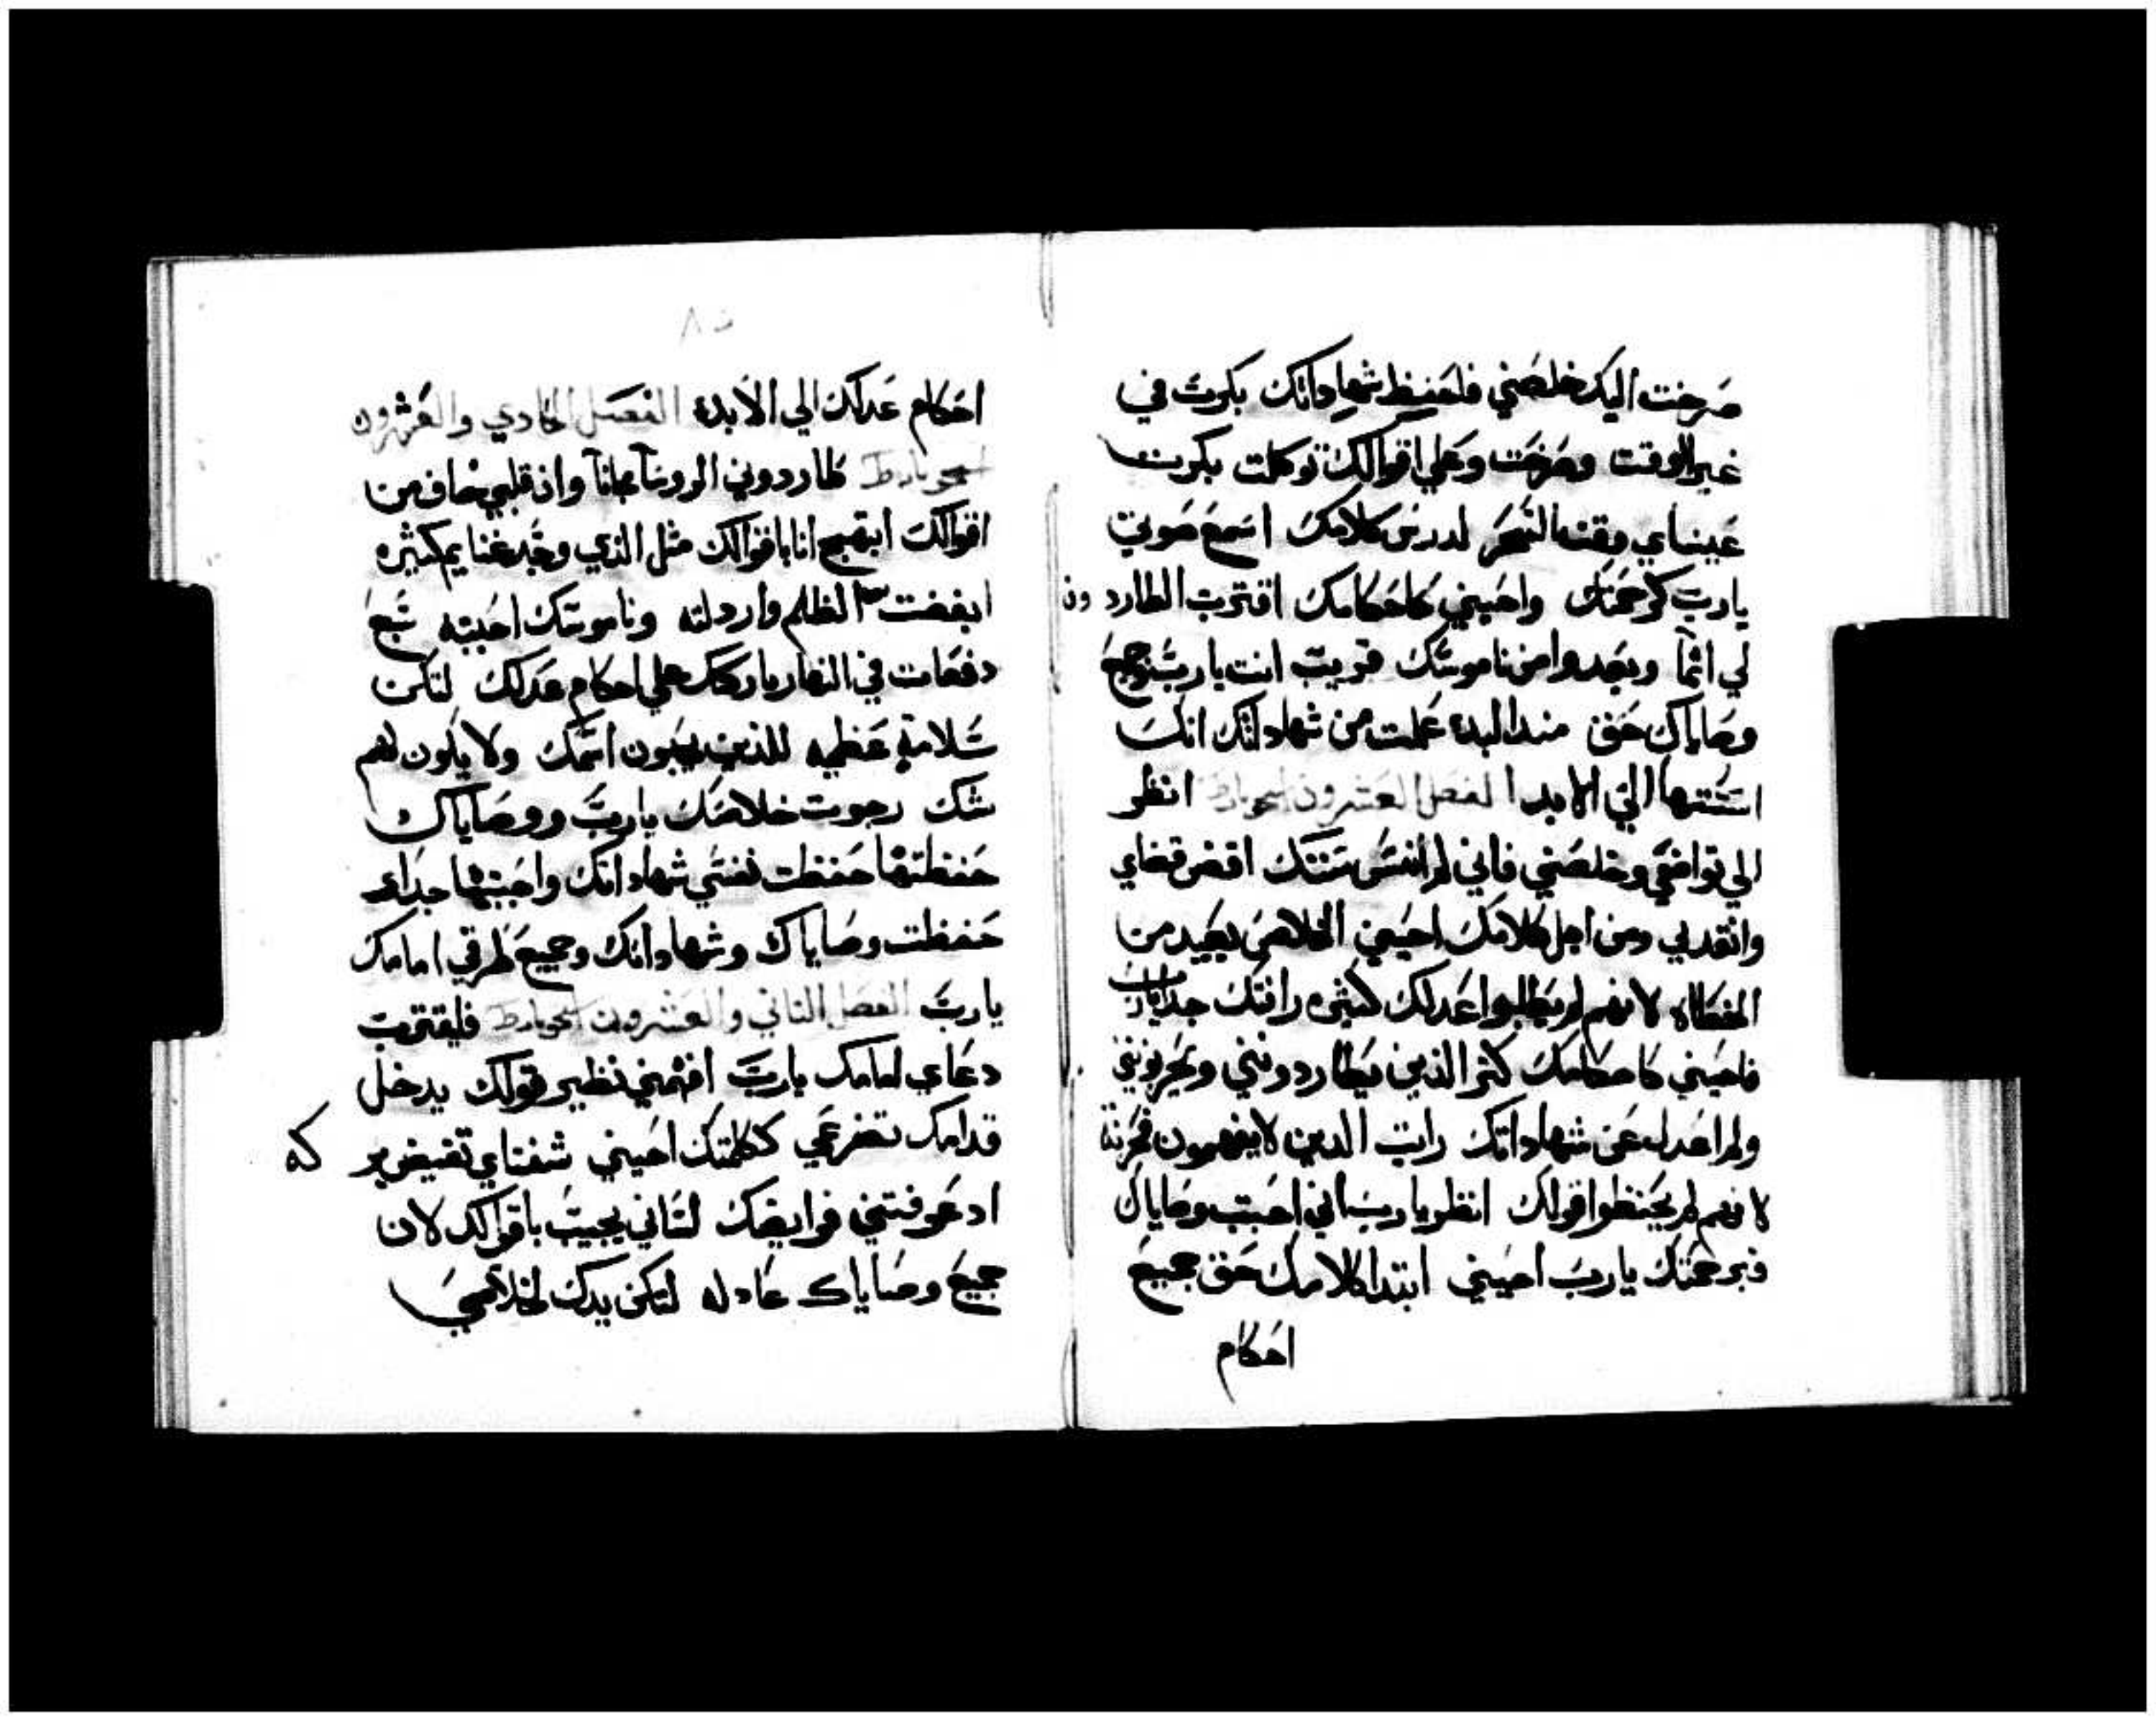 صرخت اليك خلصني فاحفظ شهاداتك بكرت في
غير الوقت وصرخت وعلي اقوالك توكلت بكرت
عيناي وقت السحر لدرس كلامك اسمع صوتي
يارب كرحمتك واحيني كاحكامك اقترب الطاردون
لي اثما وبعدوا من ناموسك قريب انت يارب وجميع
وصاياك حق مند البدء علمت من شهاداتك انك
اسستها الي الابد الفصل العشرون انظر
الي تواضعي وخلصني فاني لم انسي سننك اقض قضاي
وانقدني ومن اجل كلامك احيني الخلاص بعيد من
الخطاه لانهم لم يطلبوا عدلك كثيره رافتك جدا يارب
فاحيني كاحكامك كثر الذين يطاردونني ويحزنونني
ولم اعدل عن شهاداتك رايت الدين لا يفهمون فحزنت
لانهم لم يحفظوا اقوالك انظر يارب اني احببت وصاياك
فبرحمتك يارب احيني ابتدا كلامك حق جميع
احكام
احكام عدلك الي الابد الفصل الحادي والعشرون
طاردوني الروسآ مجانآ واذ قلبي خاف من
اقوالك ابتهج انا باقوالك مثل الذي وجد غنايم كثيره
ابغضت الظلم واردلته وناموسك احببته سبع
دفعات في النهار باركتك علي احكام عدلك لتكن
سلامة عظيمه للذين يحبون اسمك ولا يكون لهم
شك رجوت خلاصك يارب ووصاياك
حفظتها حفظت نفسي شهاداتك واحببتها جدا
حفظت وصاياك وشهاداتك وجميع طرقي امامك
يارب الفصل الثاني والعشرون فليقترب
دعاي امامك يارب افهمني نظير قولك يدخل
قدامك تضرعي ككلمتك احيني شفتاي تفيض بر
كه
ادعوفتني فرايضك لساني يجيب باقوالك لان
جميع وصاياك عادله لتكن يدك لخلاصي